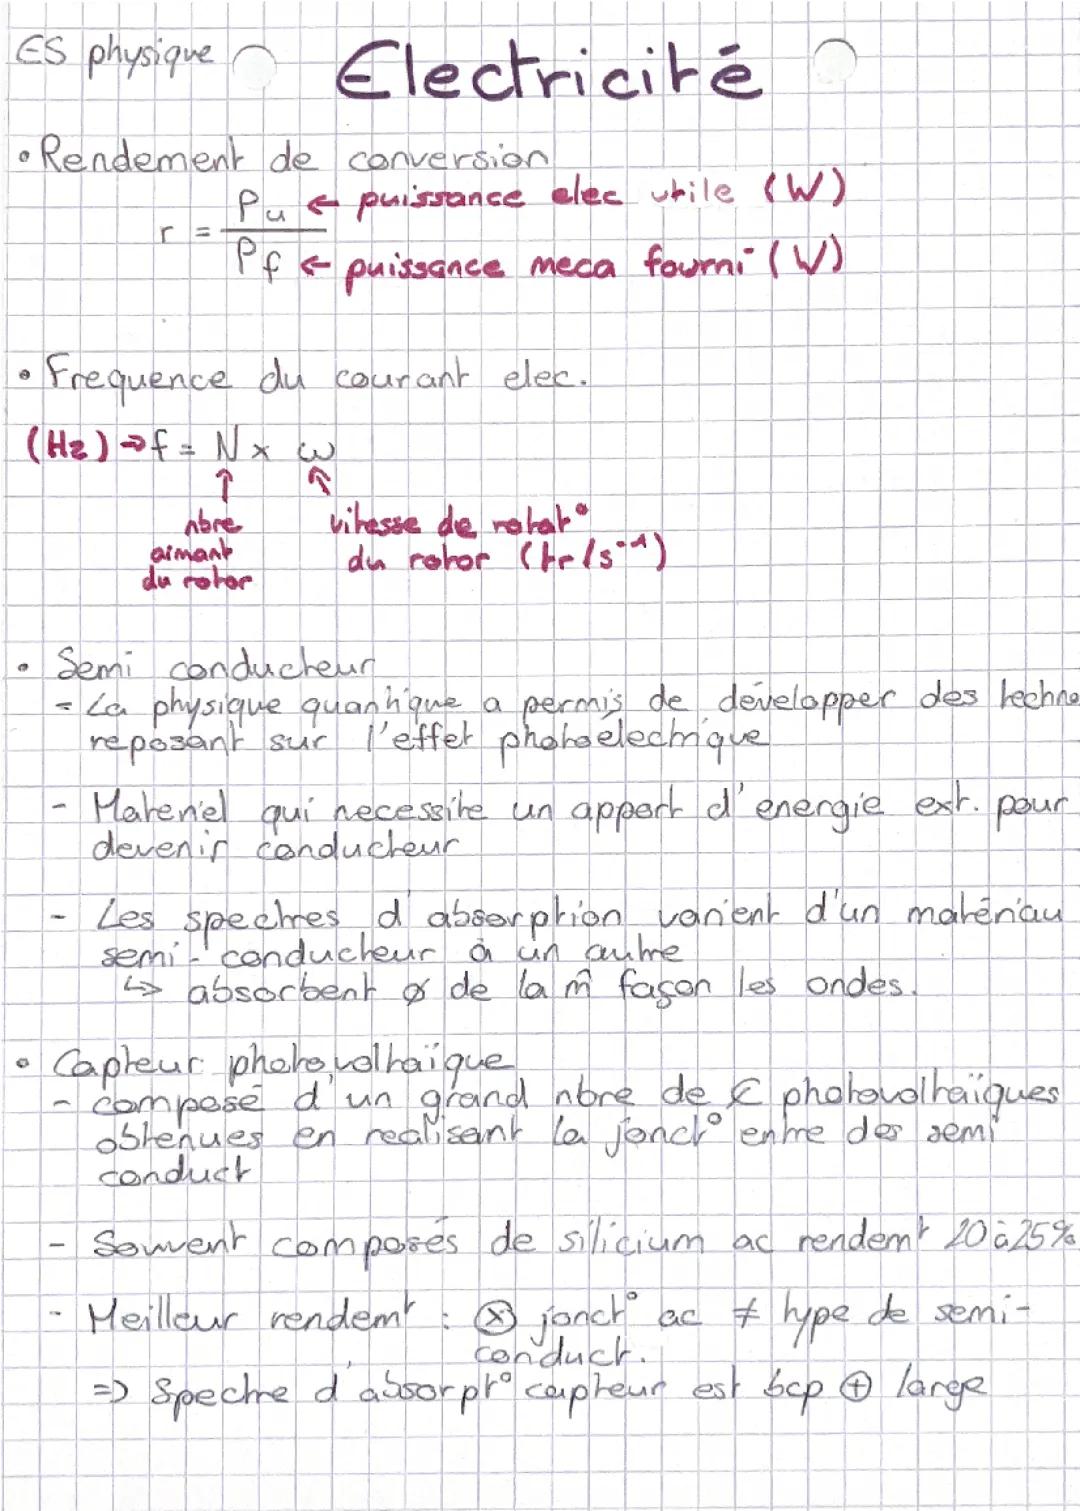 ES physique
Electricité
• Rendement de conversion
r = Pu ← puissance elec utile (W)
Pf ← puissance meca fourni (W)
• Frequence du courant elec.
(Hz) → f = N x ω
↑ ↑
nbre vitesse de rotat°
aimant du rotor (tr/s⁻¹)
du rotor
• Semi conducteur
- La physique quantique a permis de développer des techno
reposant sur l'effet photoelectrique
- Materiel qui necessite un apport d'energie ext. pour
devenir conducteur
- Les spectres d'absorption varient d'un matériau
semi-conducteur à un autre
↳ absorbent ∅ de la m̂ façon les ondes.
• Capteur photovolthaïque
- composé d'un grand nbre de € photovolthaïques
obtenues en realisant la jonct° entre des semi
conduct
- Souvent composés de silicium ac rendemt 20 à 25%
- Meilleur rendemt : ⊗ jonct° ac ≠ type de semi-
conduct.
=> Spectre d'absorpt° capteur est bcp ⊕ large